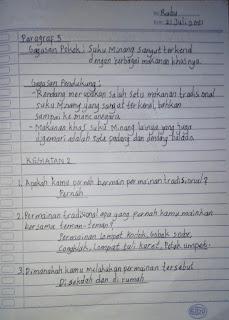 No: Rabu
Date: 21 Juli 2021
Paragraf 3
Gagasan Pokok : Suku Minang sangat terkenal
dengan berbagai makanan khasnya.
Gagasan Pendukung :
- Rendang merupakan salah satu makanan tradisional
suku Minang yang sangat terkenal, bahkan
sampai ke mancanegara
- Makanan khas suku Minang lainya yang juga
digemari adalah sate padang dan dendeng balado.
KEGIATAN 2
1. Apakah kamu pernah bermain permainan tradisional?
Pernah
2. Permainan tradisional apa yang pernah kamu mainkan
bersama teman-teman?
Permainan lompat kodok, Gobak sodor,
Congklak, Lompat tali karet, Petak umpet.
3. Dimanakah kamu melakukan permainan tersebut
Di sekolah dan di rumah